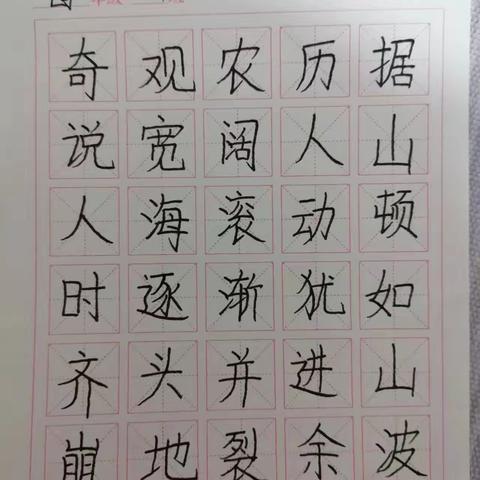 奇观农历据
说宽阔人山
人海滚动顿
时逐渐犹如
齐头并进山
崩地裂余波